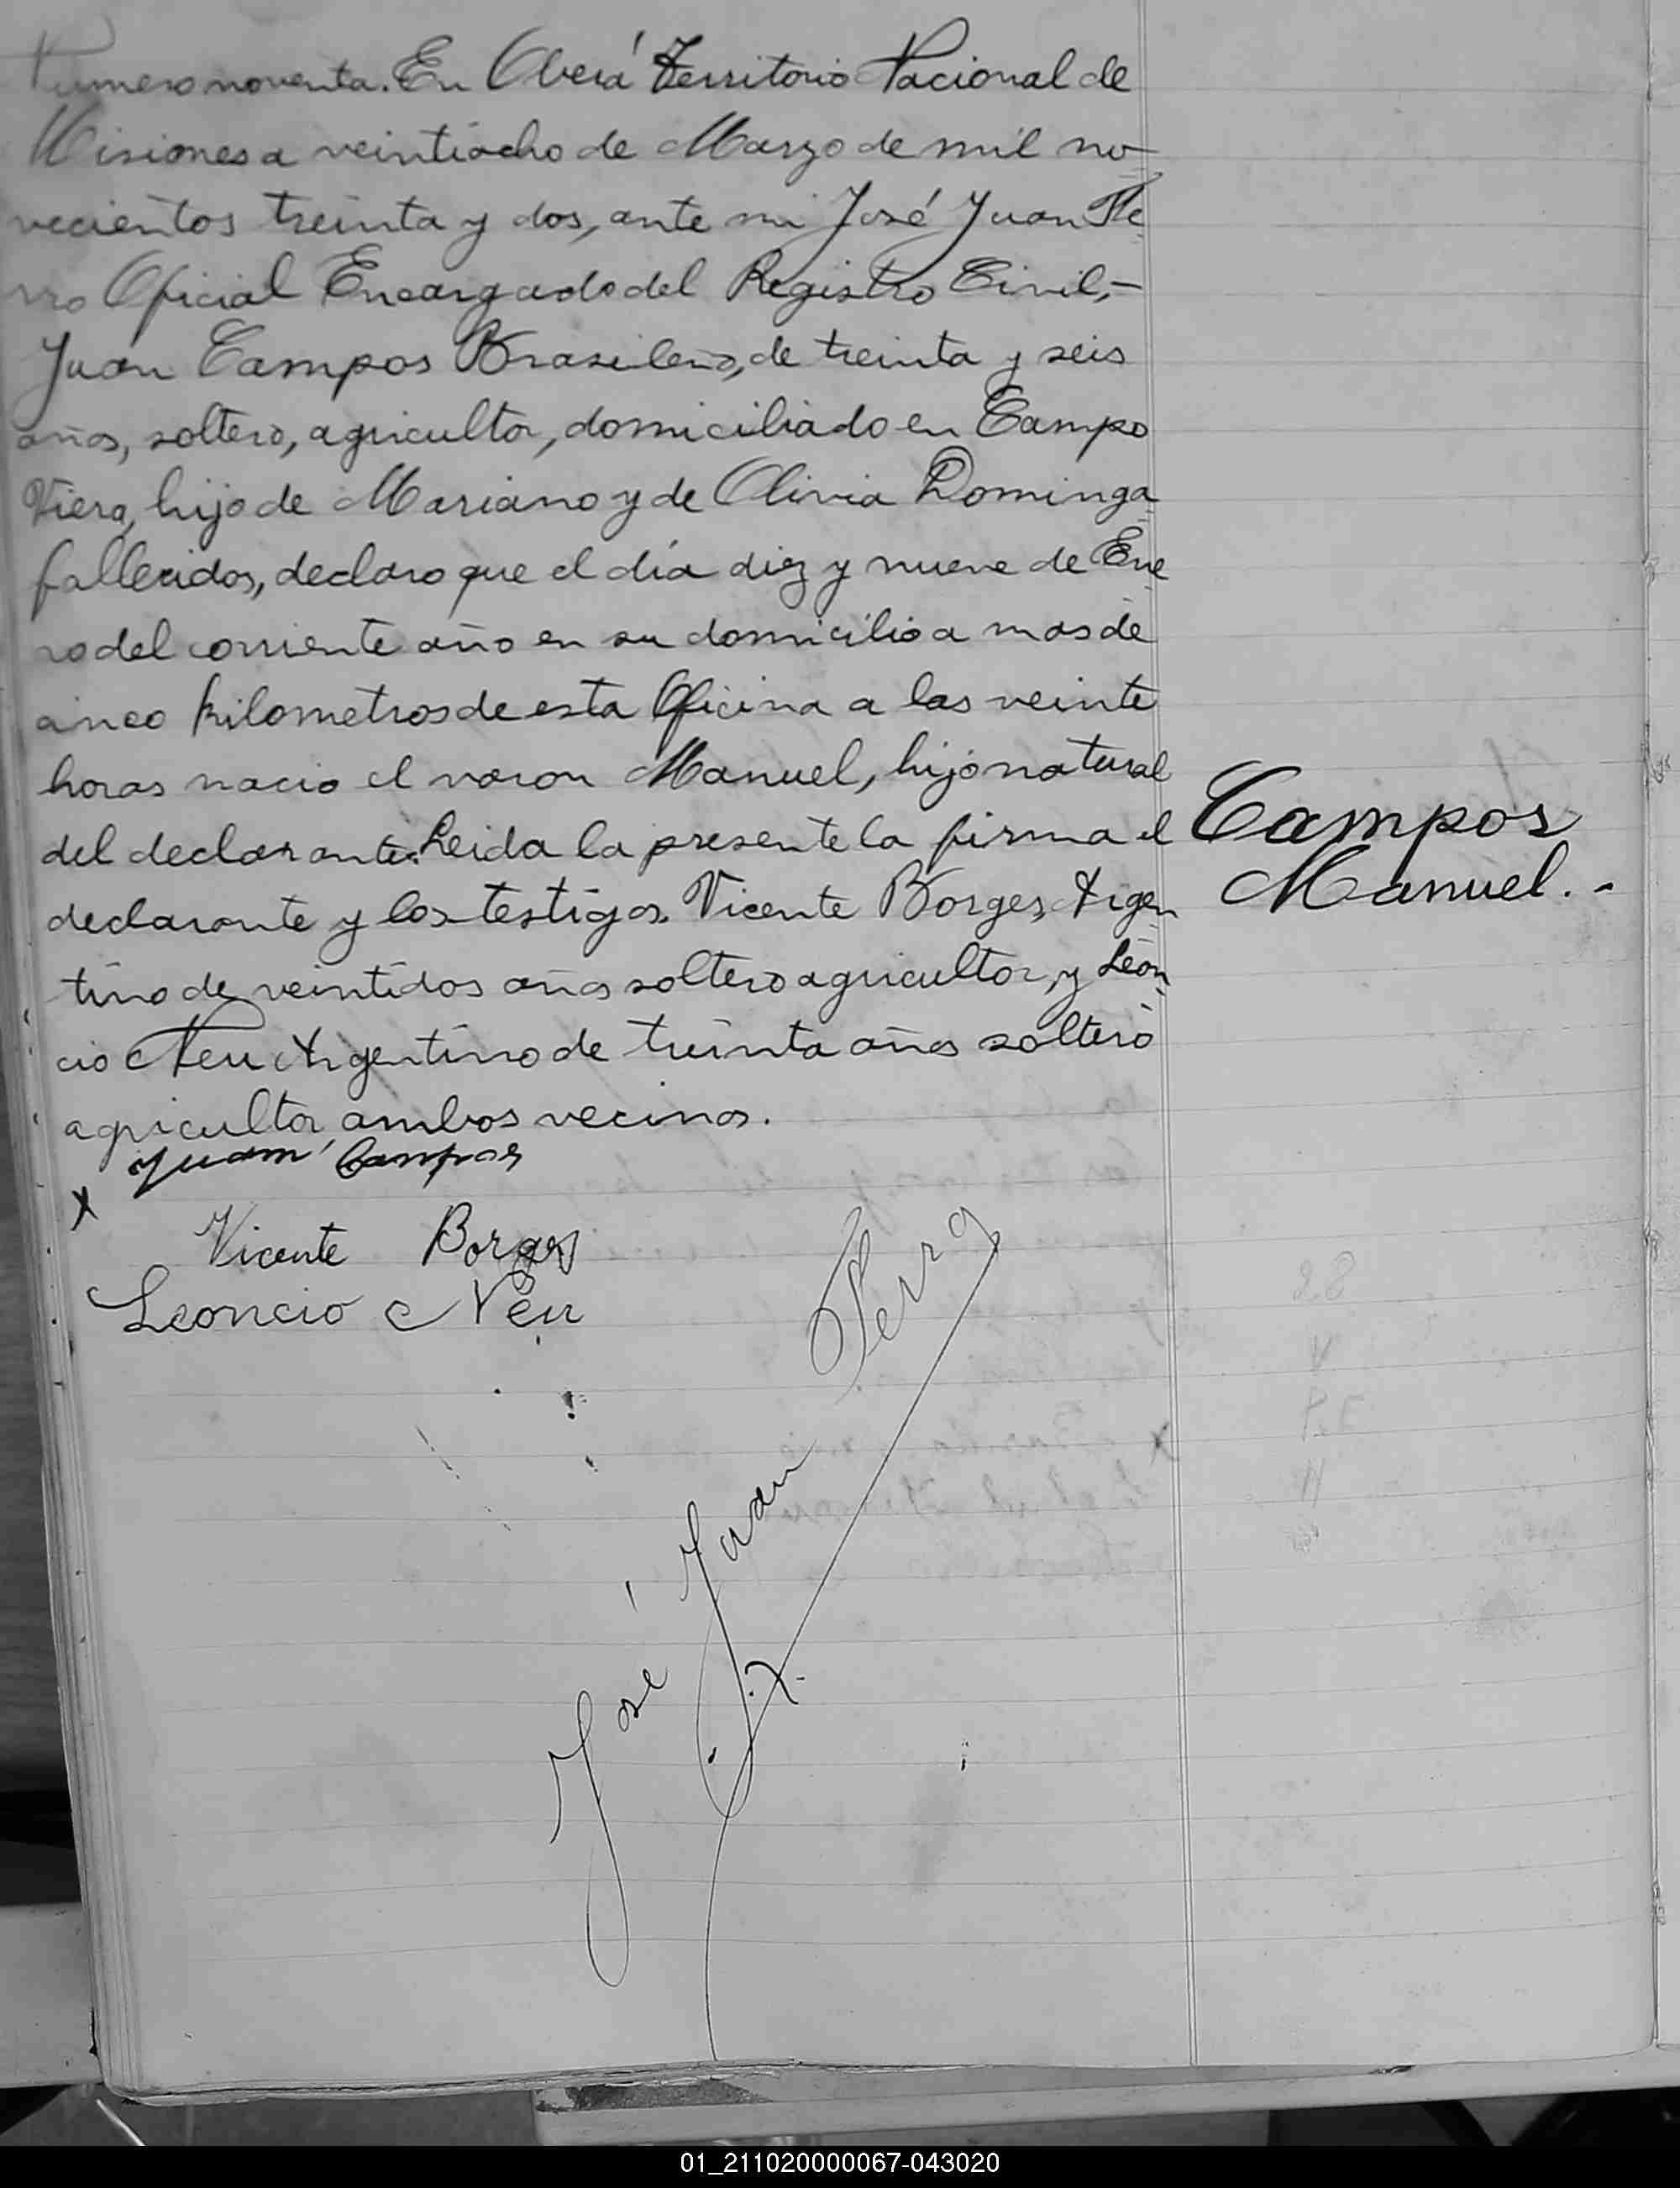 Numero noventa. En Oberá Territorio Nacional de
Misiones a veintiocho de Marzo de mil no-
vecientos treinta y dos, ante mi José Juan Pe-
rro Oficial Encargado del Registro Civil,-
Juan Campos Brasileño, de treinta y seis
años, soltero, agricultor, domiciliado en Campo
Viera, hijo de Mariano y de Olivia Dominga
fallecidos, declaro que el día diez y nueve de Ene-
ro del corriente año en su domicilio a mas de
cinco kilometros de esta Oficina a las veinte
horas nacio el varon Manuel, hijo natural
del declarante. Leida la presente la firma el
declarante y los testigos. Vicente Borges, Argen
tino de veintidos años soltero agricultor, y Leon
cio Neu Argentino de treinta años soltero
agricultor, ambos vecinos.
Campos
Manuel.-
Juan Campos
x
Vicente Borges
Leoncio Neu
José Juan Perro
01_211020000067-043020